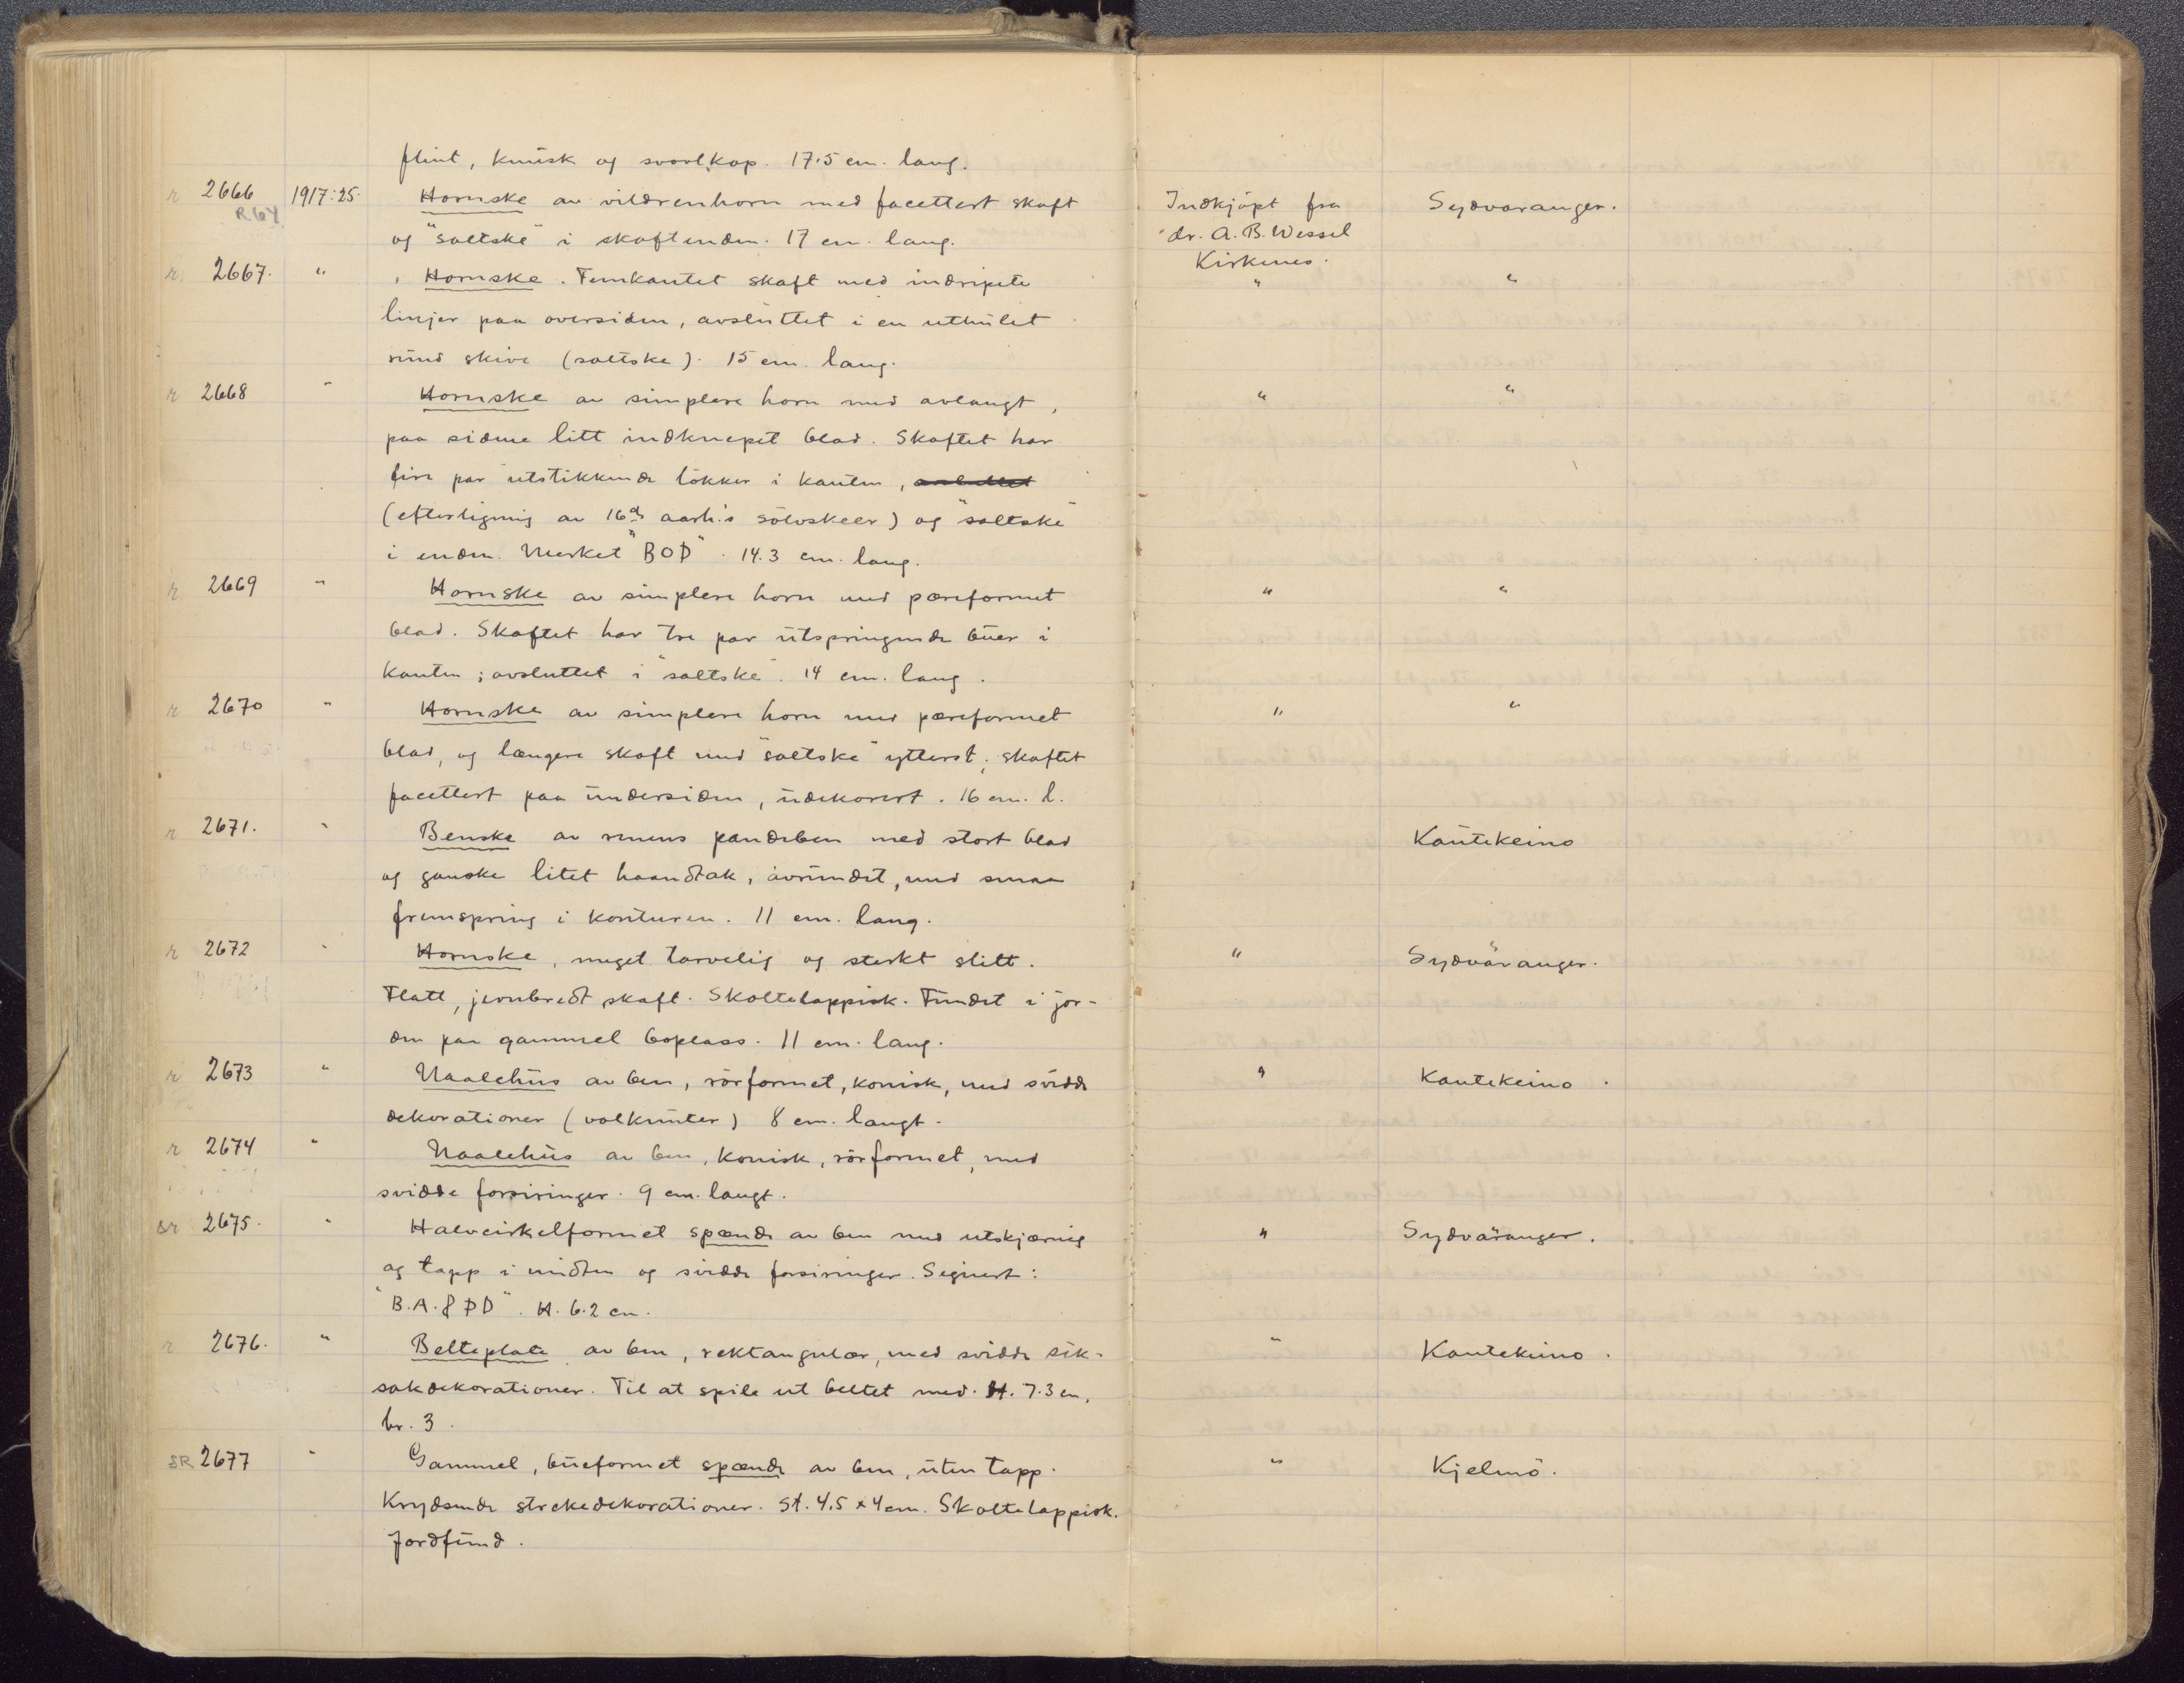 flint, knusk og svovlkop. 17.5 cm. lang.
r 2666 1917:25. Hornske av vildrenhorn med facettert skaft Indkjøpt fra Sydvaranger.
R.64
og "saltske" i skaftenden. 17 cm. lang. dr. A. B. Wessel
Kirkenes.
r 2667. " Hornske. Femkantet skaft med indripete " "
linjer paa oversiden, avsluttet i en uthulet
rund skive (saltske). 15 cm. lang.
r 2668 " Hornske av simplere horn med avlangt, " "
paa sidene litt indknepet blad. Skaftet har
fire par utstikkende løkker i kanten,
(efterligning av 16de aarh.s sölvskeer) og "saltske"
i enden. Merket "BOD". 14.3 cm. lang.
r 2669 " Hornske av simplere horn med pæreformet " "
blad. Skaftet har tre par utspringende buer i
kanten; avsluttet i "saltske". 14 cm. lang.
r 2670 " Hornske av simplere horn med pæreformet " "
blad, og længere skaft med "saltske" ytterst; skaftet
facettert paa undersiden, udekorert. 16 cm. l.
r 2671. " Benske av renens pandeben med stort blad Kautekeino
og ganske litet haandtak, avrundet, med smaa
fremspring i konturen. 11 cm. lang.
r 2672 " Hornske, meget tarvelig og sterkt slitt. " Sydvaranger.
Flatt, jevnbredt skaft. Skoltelappisk. Fundet i jor-
den paa gammel boplass. 11 cm. lang.
r 2673 " Naalehus av ben, rörformet, konisk, med svidde " Kautekeino.
dekorationer (valknuter) 8 cm. langt.
r 2674 " Naalehus av ben, konisk, rörformet, med
svidde forsiringer. 9 cm. langt.
sr 2675. " Halvcirkelformet spænde av ben med utskjæring " Sydvaranger.
og tapp i midten og svidde forsiringer. Signert:
H. 6.2 cm.
r 2676. " Belteplate av ben, rektangulær, med svidde sik- " Kautekeino.
sakdekorationer. Til at spile ut beltet med. H. 7.3 cm,
br. 3.
SR 2677 " Gammel, bueformet spænde av ben, uten tapp. " Kjelmö.
Krydsende strekedekorationer. St. 4.5 x 4 cm. Skoltelappisk.
Jordfund.